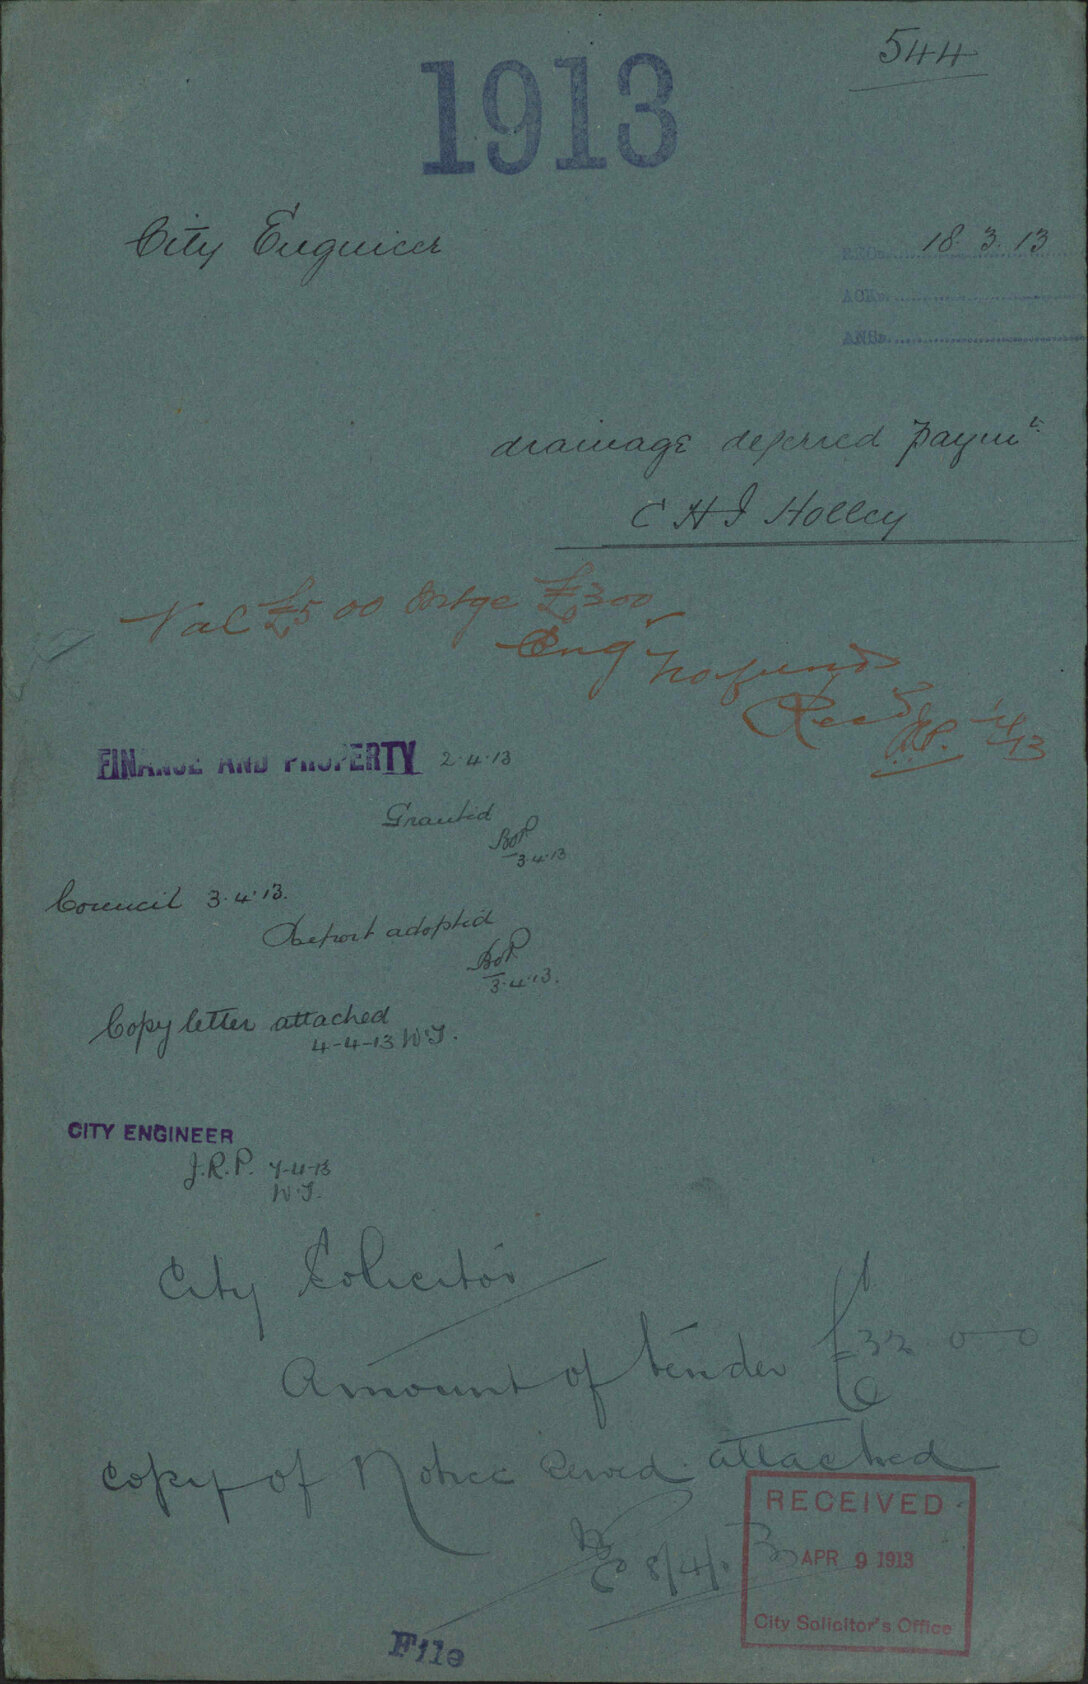 544
1913
City Engineer
REC. 18. 3. 13
ACK.
ANS.
drainage deferred paymt.
C H I Holley
Val £500 Mtge £300
Engr. no funds
Recd
J.R.P. 13
FINANCE AND PROPERTY 2.4.13
Granted
3.4.13
Council 3.4.13.
Report adopted
3.4.13.
Copy letter attached
4-4-13 W.J.
CITY ENGINEER
J.R.P. 7-4-13
W.J.
City Solicitor
Amount of tender £32.0.0
copy of Notice served attached
8/4/13
RECEIVED
APR 9 1913
City Solicitor's Office
File